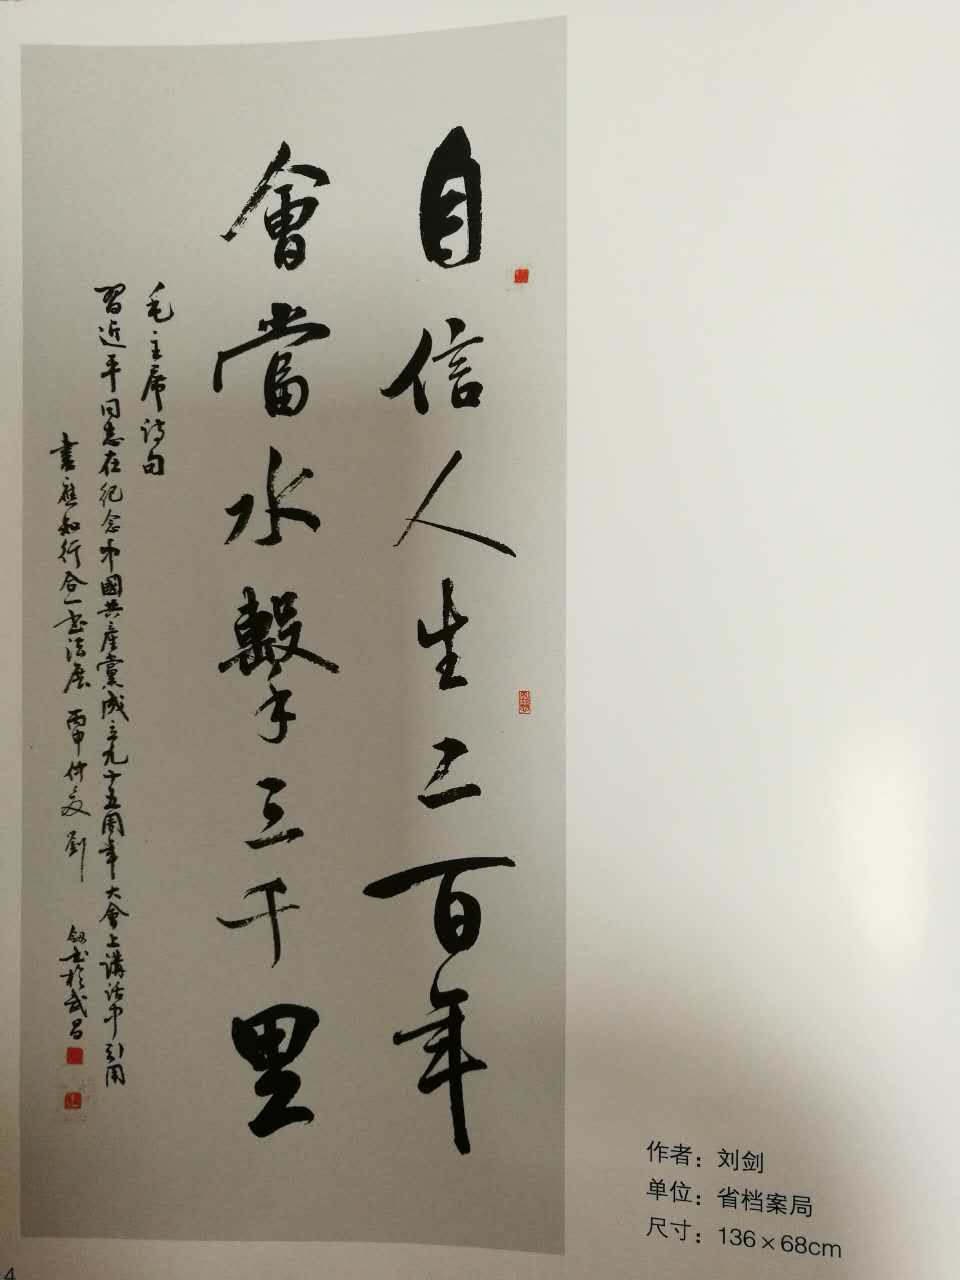 自信人生二百年
會當水擊三千里
毛主席诗句
習近平同志在纪念中國共產黨成立九十五周年大會上講话中引用
書應知行合一书法展 丙申仲夏 劉
剑书於武昌
作者：刘剑
单位：省档案局
尺寸：136×68cm
4